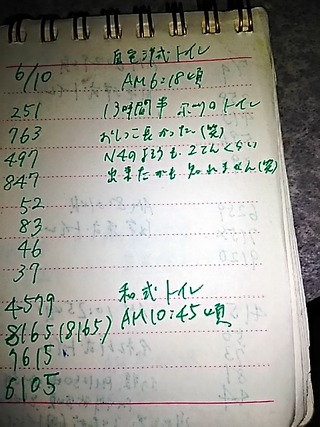 自宅洋式トイレ
6/10 AM6:18頃
251 13時間半
763 おしっこ長かった(笑)
497
847 出来たかも知れません(笑)
52
83
46
37
4579 和式トイレ
8165(8165) AM10:45頃
7615
6105